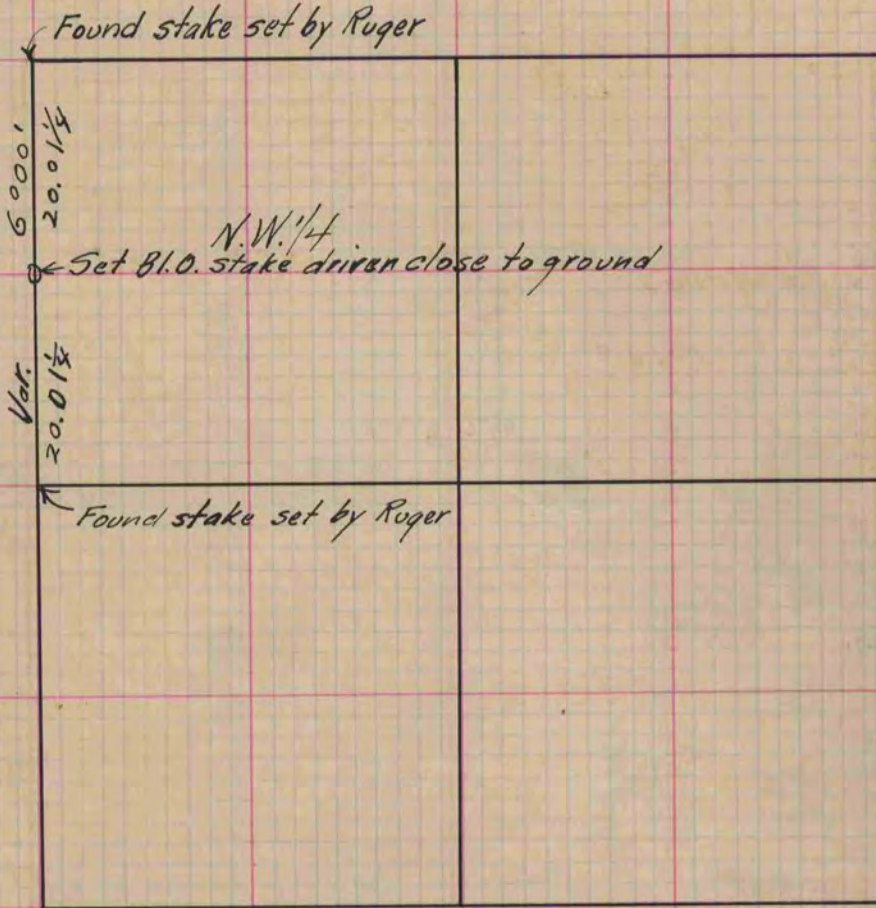 Found stake set by Ruger
Var. 6°00'
20.01¼
N.W.1/4
Set Bl.O. stake driven close to ground
20.01¼
Found stake set by Ruger